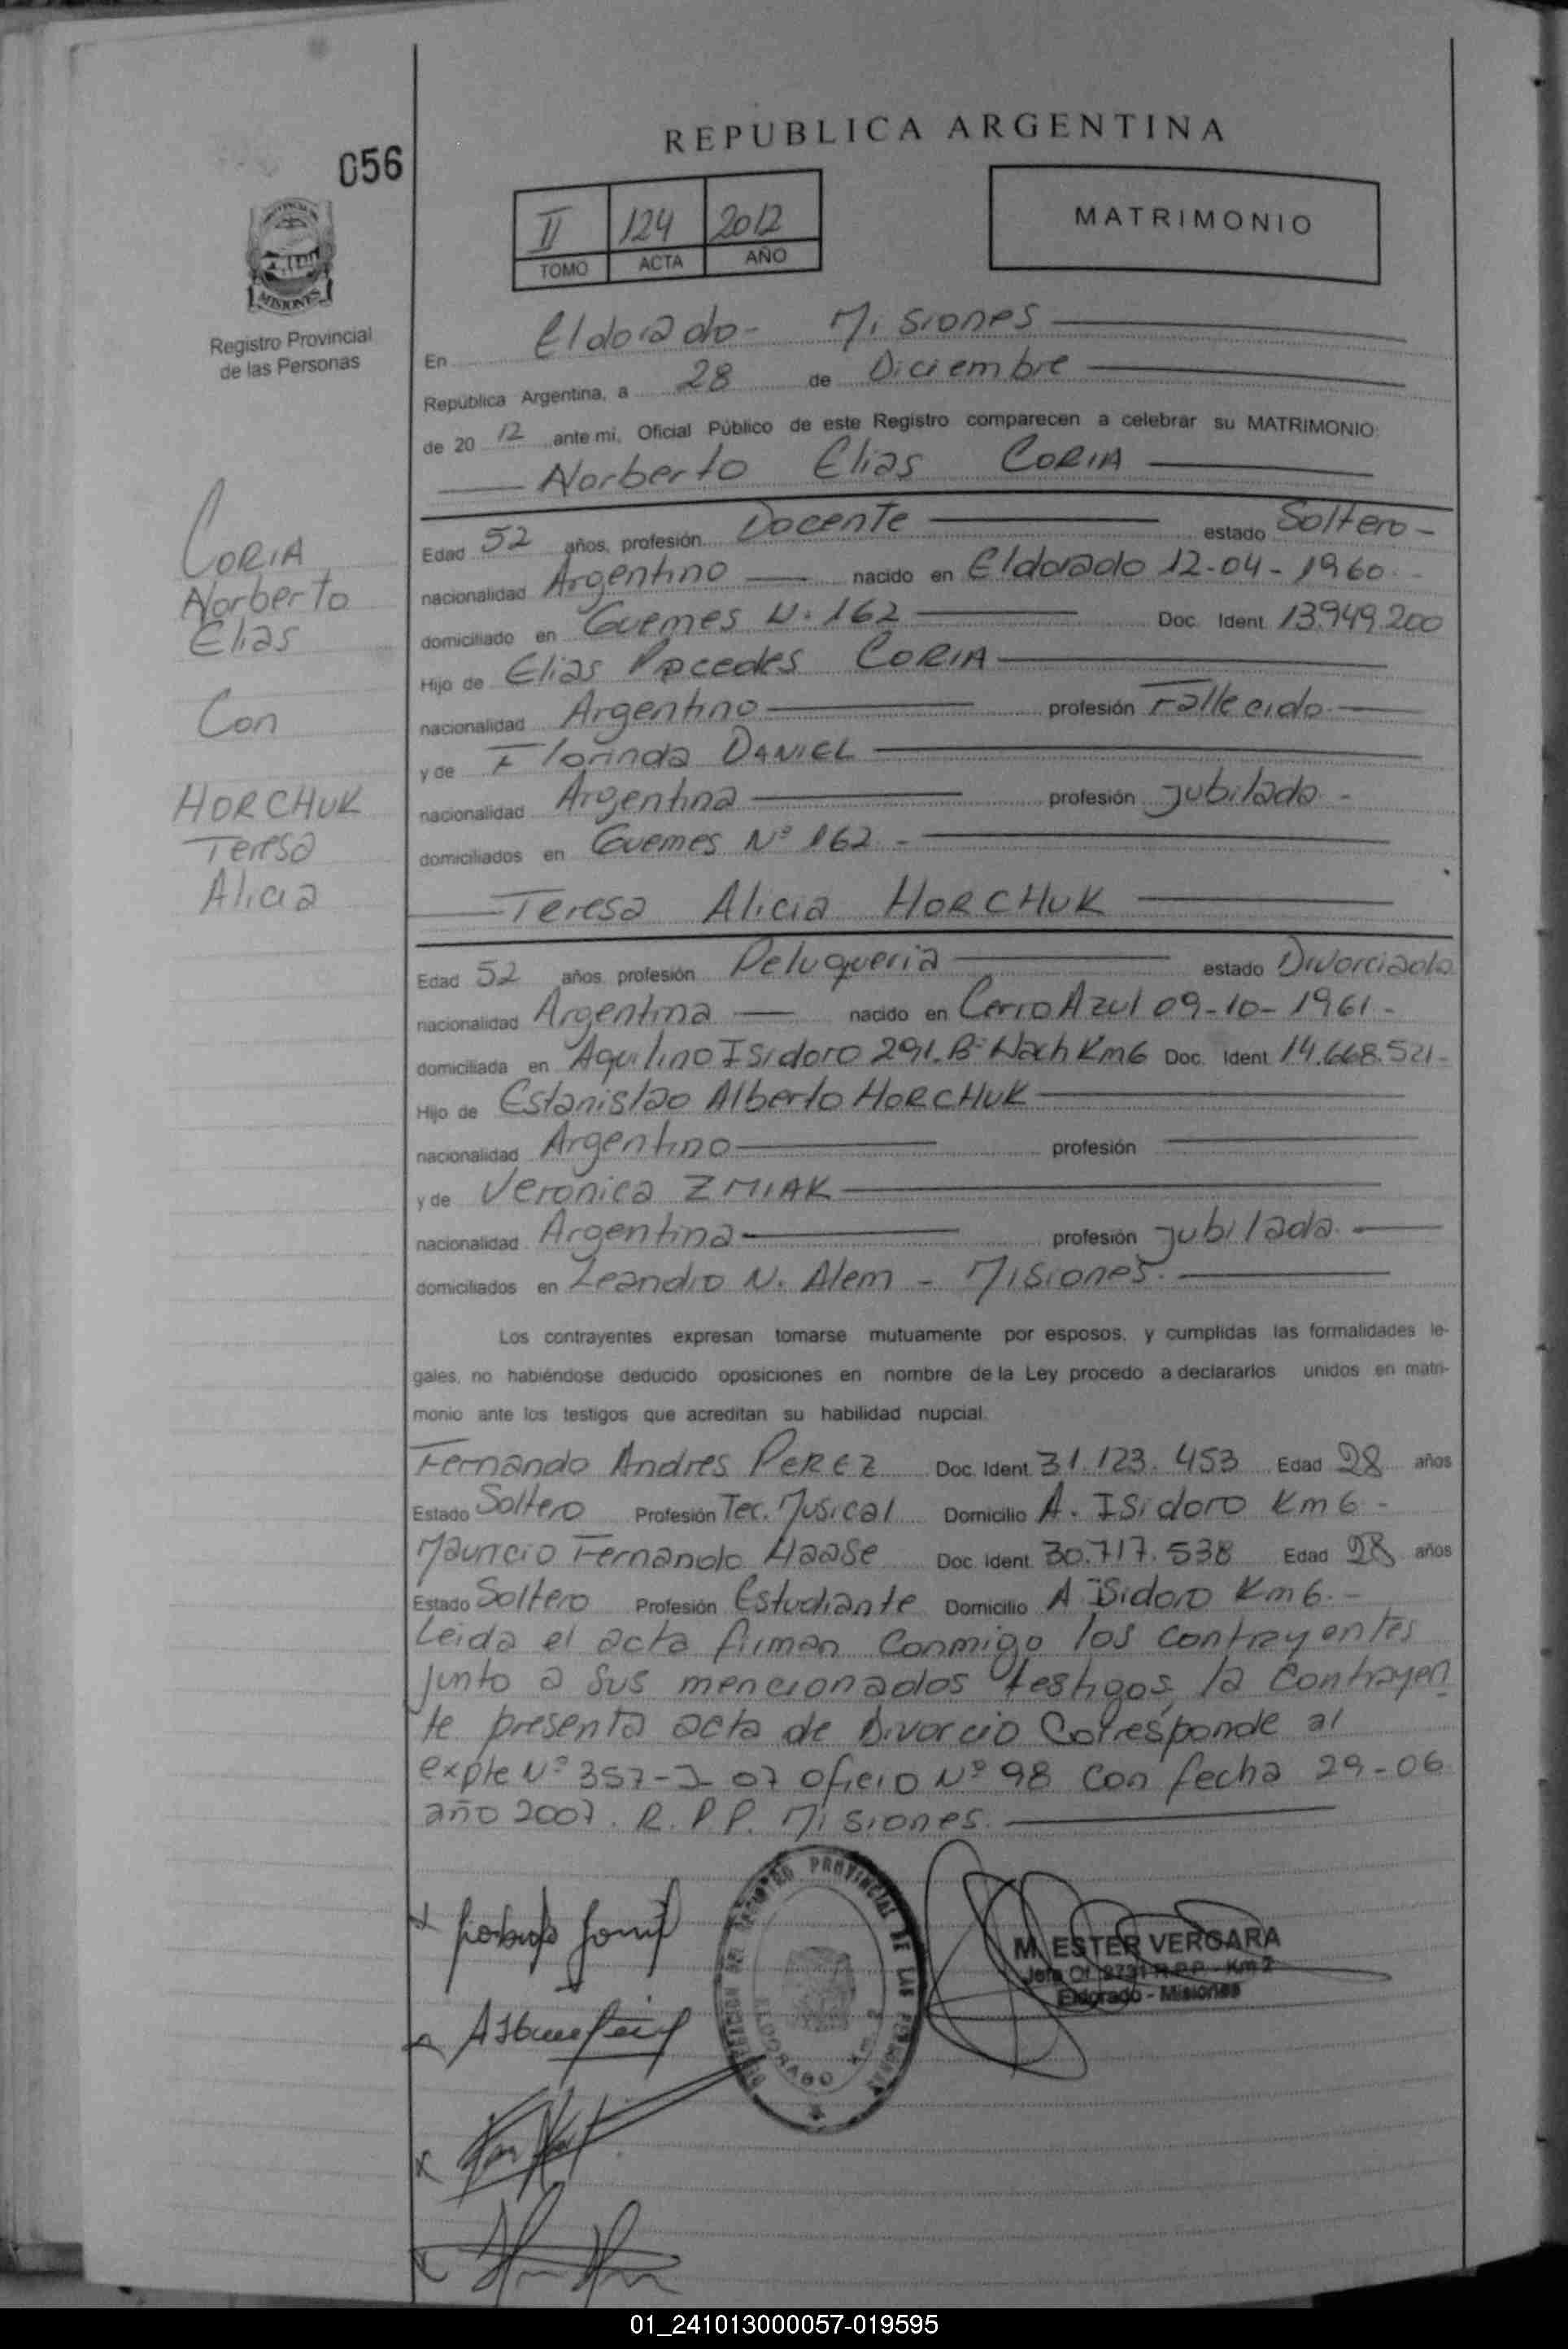 056
REPUBLICA ARGENTINA
II 124 2012
TOMO ACTA AÑO
MATRIMONIO
MISIONES
Registro Provincial
de las Personas
En Eldorado - Misiones
República Argentina, a 28 de Diciembre
de 20 12 ante mi, Oficial Público de este Registro comparecen a celebrar su MATRIMONIO:
Norberto Elias CORIA
CORIA
Norberto
Elias
Con
HORCHUK
Teresa
Alicia
Edad 52 años, profesión Docente estado Soltero -
nacionalidad Argentino nacido en Eldorado 12-04-1960.-
domiciliado en Guemes N. 162 Doc. Ident. 13.949.200
Hijo de Elias CORIA
nacionalidad Argentino profesión Fallecido.
y de Florinda DANIEL
nacionalidad Argentina profesión Jubilada -
domiciliados en Guemes Nº 162 -
Teresa Alicia HORCHUK
Edad 52 años, profesión Peluqueria estado Divorciada
nacionalidad Argentina nacido en Cerro Azul 09-10-1961-
domiciliada en Aquilino Isidoro 291. Bº Km6 Doc. Ident. 14.668.521-
Hijo de Estanislao Alberto HORCHUK
nacionalidad Argentino profesión
y de Veronica ZMIAK
nacionalidad Argentina profesión Jubilada.
domiciliados en Leandro N. Alem - Misiones.
Los contrayentes expresan tomarse mutuamente por esposos, y cumplidas las formalidades le-
gales, no habiéndose deducido oposiciones en nombre de la Ley procedo a declararlos unidos en matri-
monio ante los testigos que acreditan su habilidad nupcial.
Fernando Andres PEREZ Doc. Ident. 31.123.453 Edad 28 años
Estado Soltero Profesión Tec. Musical Domicilio A. Isidoro Km 6 -
Mauricio Fernando Haase Doc. Ident. 30.717.538 Edad 28 años
Estado Soltero Profesión Estudiante Domicilio A Isidoro Km 6.-
Leida el acta firman conmigo los contrayentes
junto a sus mencionados testigos, la contrayen
te presenta acta de Divorcio Corresponde al
expte Nº 357-J-07 oficio Nº 98 con fecha 29-06
año 2007. R.P.P. Misiones.
REGISTRO PROVINCIAL DE LAS PERSONAS
ELDORADO Km 2
M. ESTER VERGARA
Jefa Of. 2731 R.P.P. - Km 2
Eldorado - Misiones
01_241013000057-019595